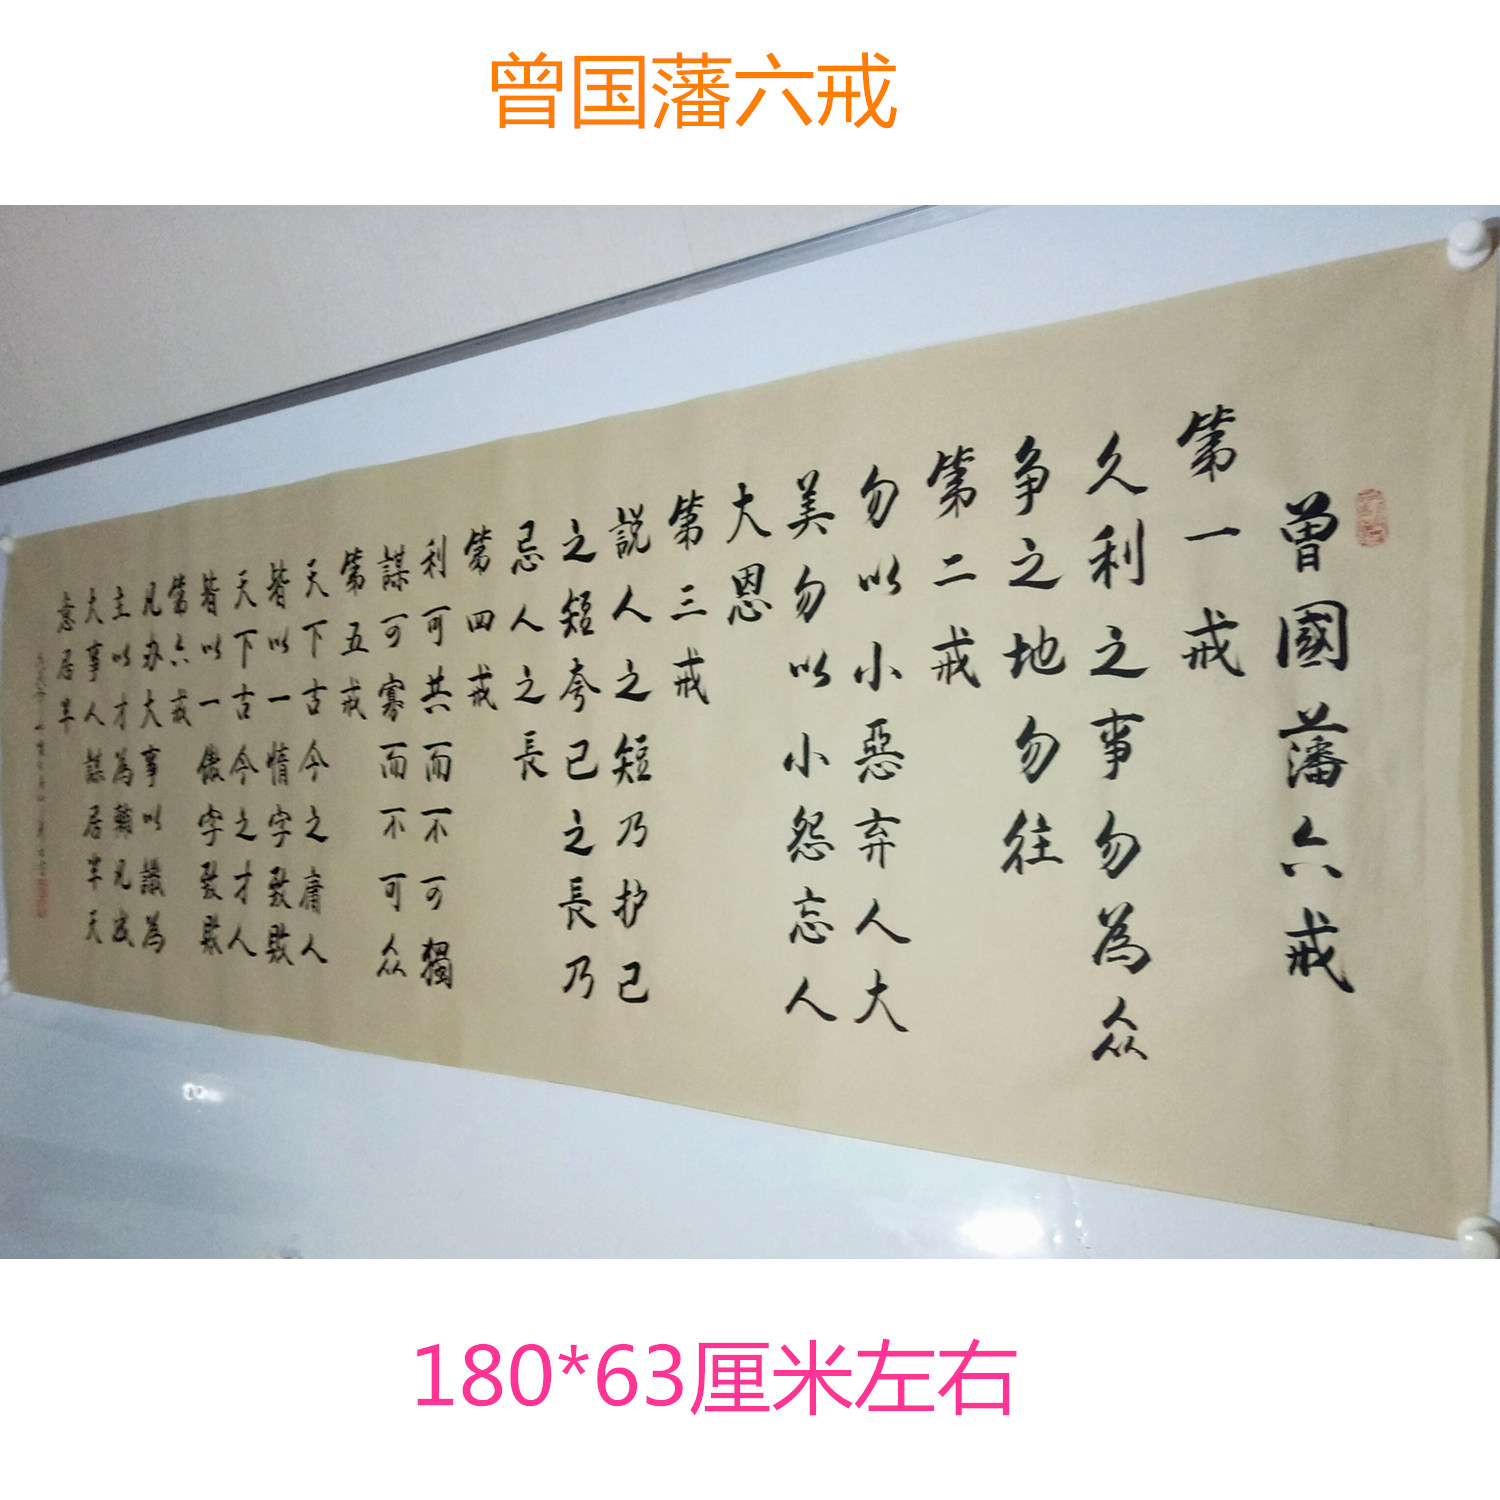 曾国藩六戒
曾國藩六戒
第一戒
久利之事勿為众
争之地勿往
第二戒
勿以小惡弃人大
美勿以小怨忘人
大恩
第三戒
説人之短乃护己
之短夸己之長乃
忌人之長
第四戒
利可共而不可獨
謀可寡而不可众
第五戒
天下古今之庸人
皆以一惰字致敗
天下古今之才人
皆以一傲字致敗
第六戒
凡办大事以識為
主以才為輔凡成
大事人謀居半天
意居半
180*63厘米左右